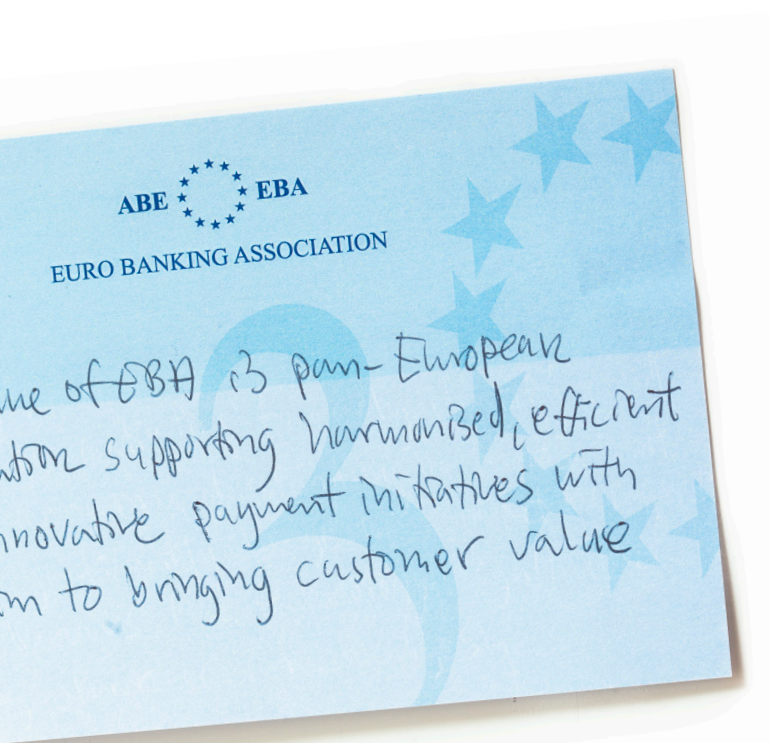 ABE EBA
EURO BANKING ASSOCIATION
of EBA is pan-European
supporting harmonised, efficient
payment initiatives with
to bringing customer value